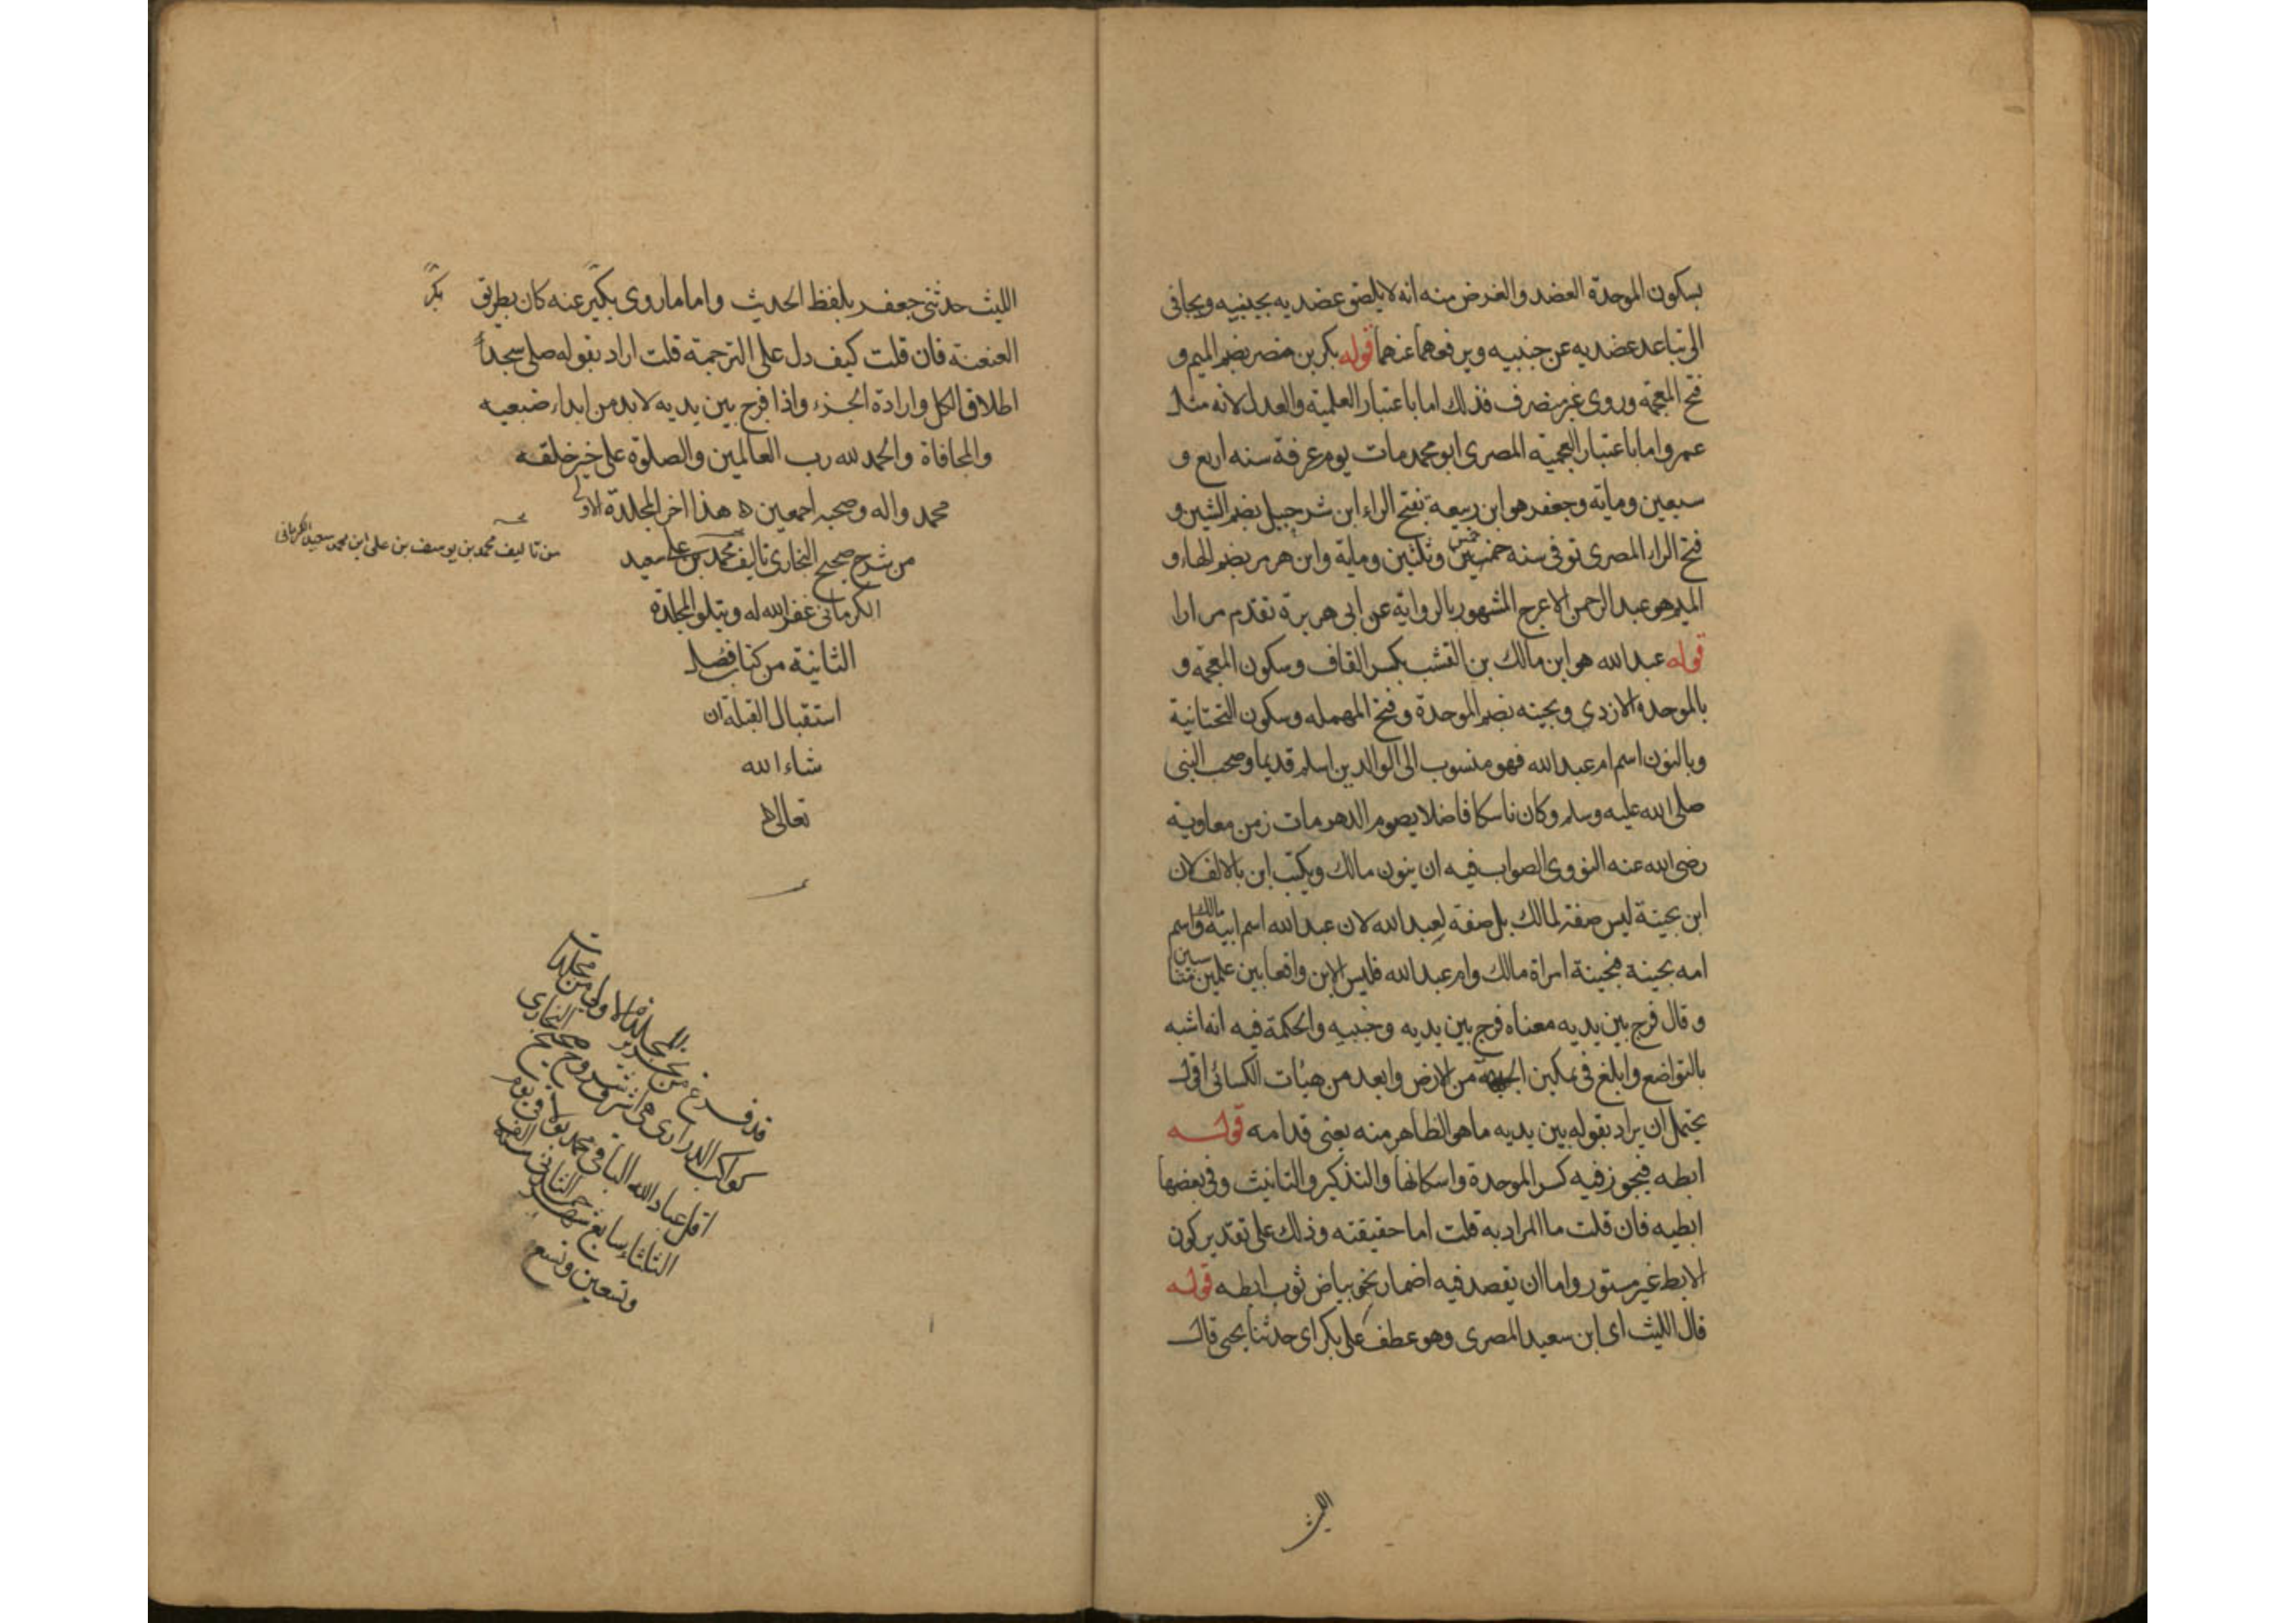 بسكون الموحدة العضد والغرض منه انه لا يلصق عضديه بجنبيه ويجافى
اى تباعد عضديه عن جنبيه ويرفعهما عنهما قوله بكر بن مضر بضم الميم و
فتح المعجمة وروى غير منصرف فذلك اما باعتبار العلمية والعدل لانه مثل
عمر واما باعتبار العجمية المصرى ابو محمد مات يوم عرفة سنه اربع و
سبعين وماية وجعفر هو ابن ربيعة بفتح الراء ابن شرحبيل بضم الشين و
فتح الراء المصرى توفى سنه خمس وثلثين وماية وابن هرمز بضم الهاء و
الميم هو عبد الرحمن الاعرج المشهور بالرواية عن ابى هريرة تقدم مرارا
قوله عبد الله هو ابن مالك بن القشب بكسر القاف وسكون المعجمة و
بالموحدة الازدى وبحينه بضم الموحدة وفتح المهمله وسكون التحتانية
وبالنون اسم ام عبد الله فهو منسوب الى الوالدين اسلم قديما وصحب النبى
صلى الله عليه وسلم وكان ناسكا فاضلا يصوم الدهر مات زمن معاوية
رضى الله عنه النووى الصواب فيه ان ينون مالك ويكتب ابن بالالف لان
ابن بحينة ليس صفة لمالك بل صفة لعبد الله لان عبد الله اسم ابيه مالك واسم
امه بحينة فبحينة امراة مالك وام عبد الله فليس الابن واقعا بين علمين متناسبين
وقال فرج بين يديه معناه فرج بين يديه وجنبيه والحكمة فيه انه اشبه
بالتواضع وابلغ فى تمكين الجبهة من الارض وابعد من هيات الكسائى اقول
يحتمل ان يراد بقوله بين يديه ما هو الظاهر منه يعنى قدامه قوله
ابطه فيجوز فيه كسر الموحدة واسكانها والتذكير والتانيث وفى بعضها
ابطيه فان قلت ما المراد به قلت اما حقيقته وذلك على تقدير كون
الابط غير مستور واما ان يقصد فيه اضمار نحو بياض ثوب ابطه قوله
قال الليث اى ابن سعيد المصرى وهو عطف على بكر اى حدثنا يحيى قال
الليث
الليث حدثنى جعفر بلفظ الحديث واما ما روى بكير عنه كان بطريق
بكر
العنعنة فان قلت كيف دل على الترجمة قلت اراد بقوله صلى سجد
اطلاق الكل وارادة الجزء واذا فرج بين يديه لابد من ابداء ضبعيه
والمجافاة والحمد لله رب العالمين والصلوة على خير خلقه
محمد واله وصحبه اجمعين ه هذا اخر المجلدة الاولى
من شرح صحيح البخارى تاليف محمد بن على سعيد
من تاليف محمد بن يوسف بن على ابن محمد سعيد الكرمانى
الكرمانى غفر الله له ويتلو المجلدة
الثانية من كتاب فضل
استقبال القبلة ان
شاء الله
تعالى ه
قد فرغ من تحرير المجلدة الاولى من مجلدات
كواكب الدرارى فى شروح صحيح البخارى
اقل عباد الله الباقى محمد فى يوم
الثلثاء سابع شهر الثانى الف
وتسعين وتسع